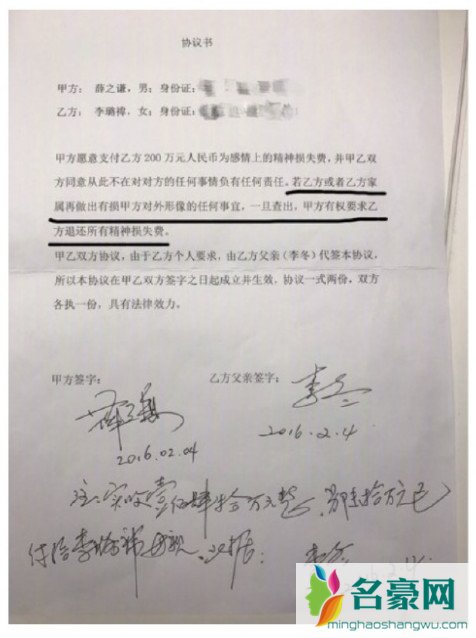 协议书
甲方：薛之谦，男；身份证：
乙方：李璐褘，女；身份证：
甲方愿意支付乙方 200 万元人民币为感情上的精神损失费，并甲乙双
方同意从此不在对对方的任何事情负有任何责任。若乙方或者乙方家
属再做出有损甲方对外形像的任何事宜，一旦查出，甲方有权要求乙
方退还所有精神损失费。
甲乙双方协议，由于乙方个人要求，由乙方父亲（李冬）代签本协议，
所以本协议在甲乙双方签字之日起成立并生效，协议一式两份，双方
各执一份，具有法律效力。
甲方签字： 乙方父亲签字：
薛之谦 李冬
2016.02.04 2016.2.4
注：实收壹佰肆拾万元整
付给李璐褘母亲 李冬
名豪网
minghaoshangwu.com